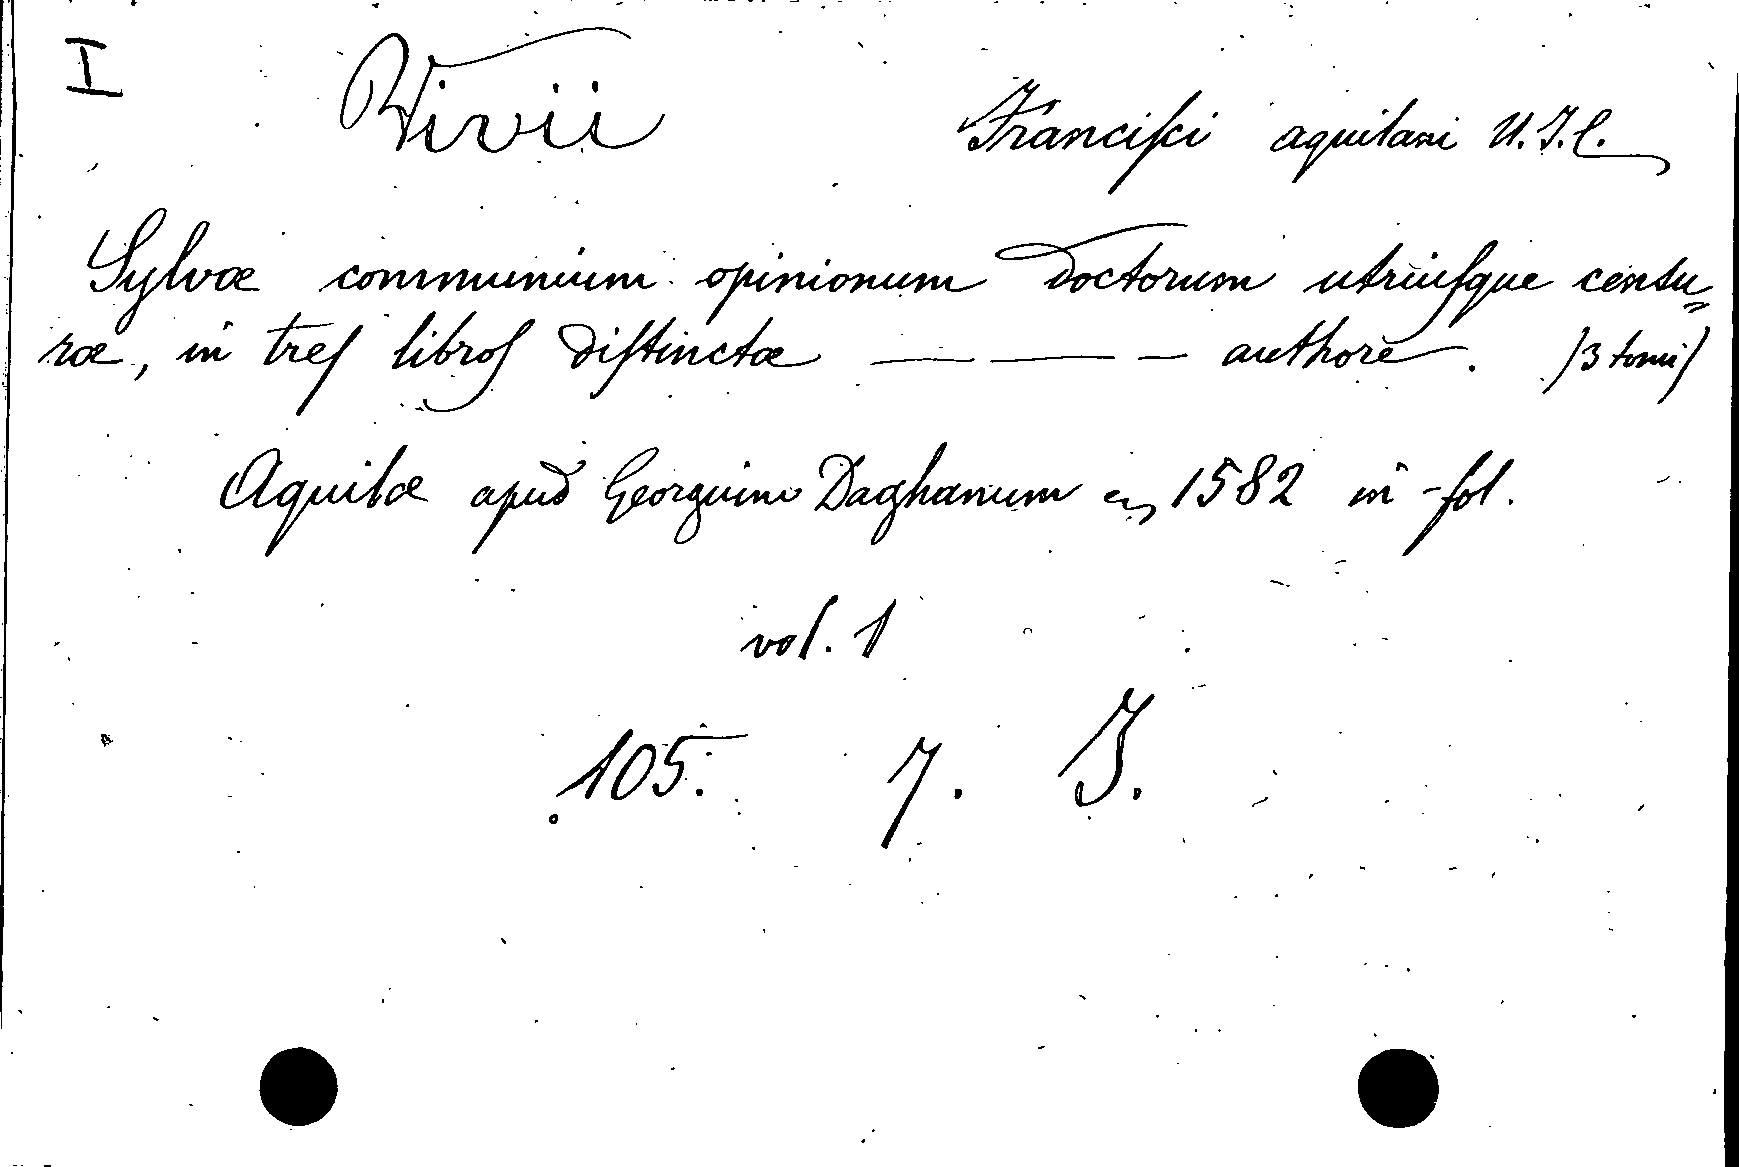 I Vivii Franciſci aquilani U.J.C.
Sylvæ communium opinionum doctorum utriuſque censu=
ræ, in treſ libroſ diſtinctæ — — — authore. (3 tomi)
Aquilæ apud Georguim Daghanum en 1582 in-fol.
vol. 1
105. 7. J.